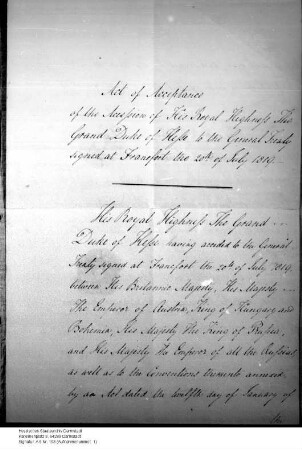 Act of Acceptance
of the Accession of His Royal Highness The
Grand Duke of Hesse to the General Treaty
signed at Francfort the 20th of July 1819.
His Royal Highness The Grand
Duke of Hesse having acceded to the General
Treaty signed at Francfort the 20th of July 1819,
between His Britannic Majesty, His Majesty
The Emperor of Austria, King of Hungary and
Bohemia, His Majesty the King of Prussia,
and His Majesty the Emperor of all the Russias
as well as to the Conventions thereunto annexed,
by an Act dated the twelfth day of January of
Hessisches Staatsarchiv Darmstadt
Karolinenplatz 3, 64289 Darmstadt